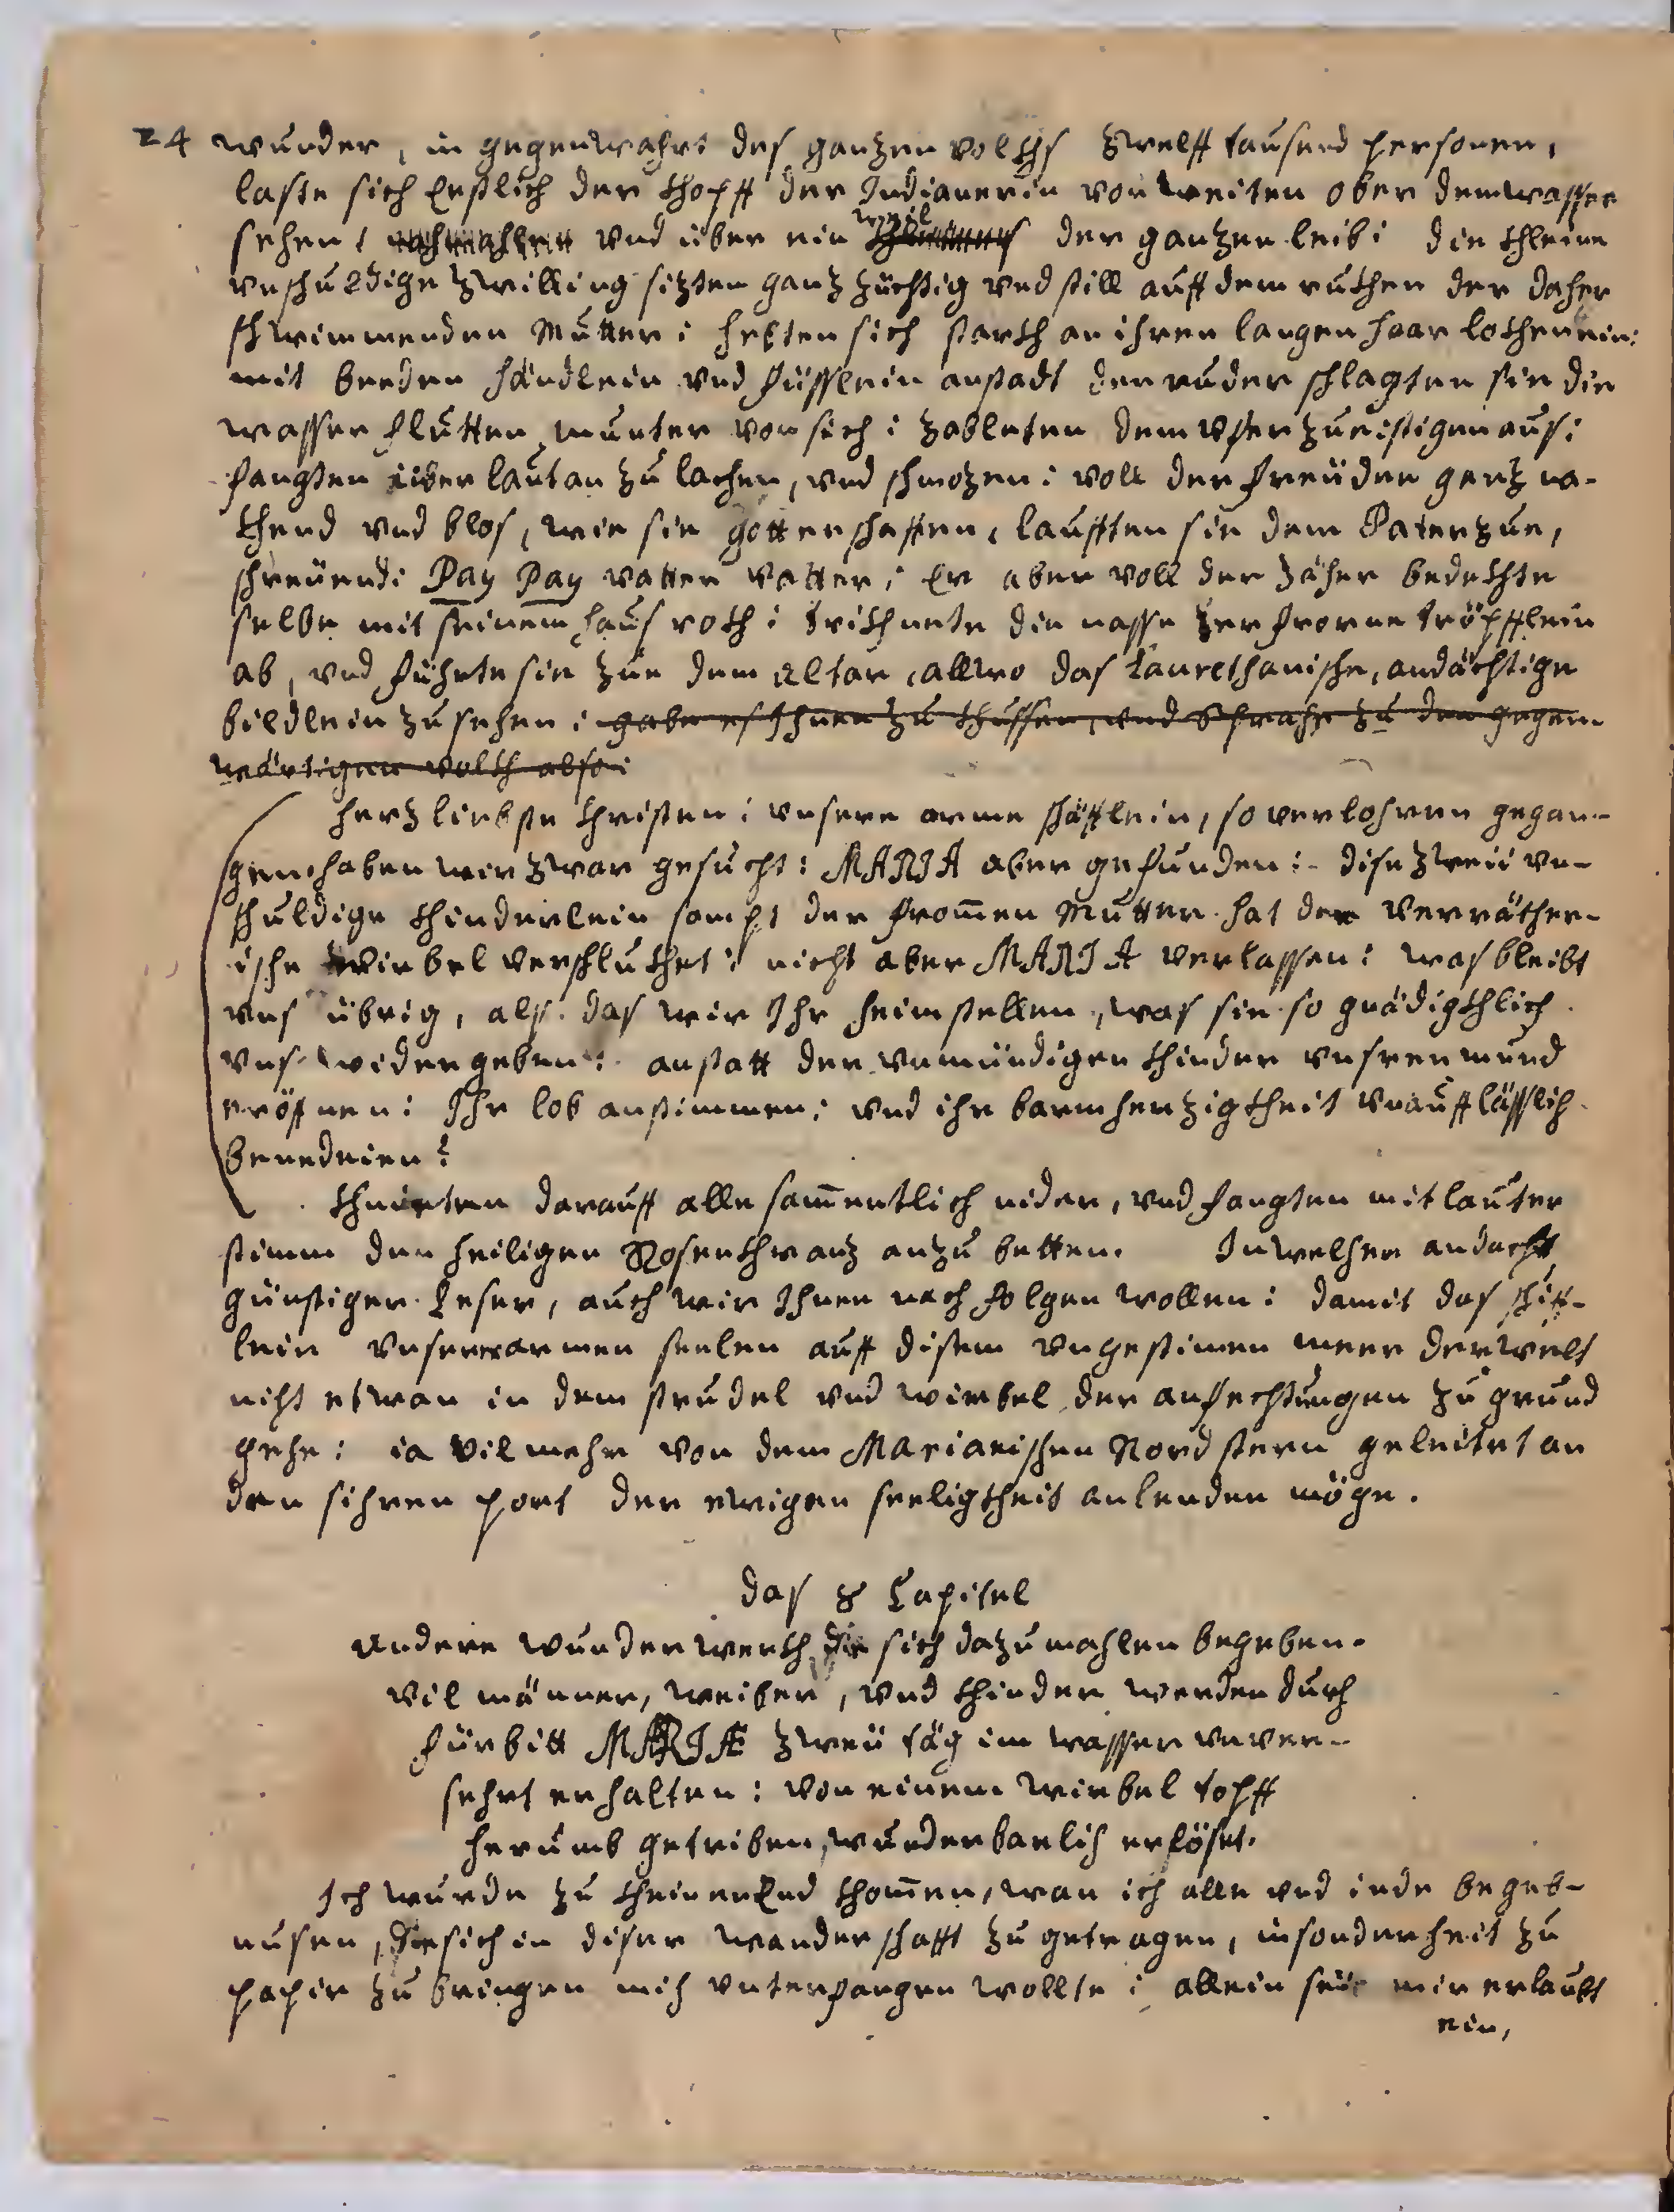 24 wunder, in gegenwahrt des ganzen volkhs zwelff tausend personen,
laste sich Erstlich der khopff der Indianerin von weiten ober dem wasser
sehen: und über ein weil der ganzen leib: die khleine
unschuldige zwilling sizten ganz züchtig und still auff dem rukhen der daher
schwimmenden Mutter: hebten sich starkh an ihren langen haar lokhen ein:
mit beeden händlein und füsslein anstadt der ruder schlagten sie die
wasser flutten munter von sich: zableten dem ufer zue: stigen aus:
fangten über laut an zu lachen, und schmozen: voll der freüden ganz na-
khend und blos, wie sie gott erschaffen, laufften sie dem Pater zue,
schreüend: Pay Pay vatter vatter: Er aber voll der zäher bedekhte
selbe mit seinem haus rokh: trikhnete die nasse zerfrorne tröpfflein
ab, und führte sie zue dem Altar, allwo das Laurethanische, andächtige
bildlein zu sehen: gabe es Ihnen zu khussen, und sprache zu den gegen-
wärtigen volkh also:
herzliebste Christen: unsere arme schäfflein, so verlohren gegan-
gen haben wir zwar gesucht: MARIA aber gefunden: dise zweü un-
schuldige khinderlein sampt der from̄en Mutter hat der verräther-
ische wirbel verschlukhet: nicht aber MARIA verlassen: was bleibt
uns übrig, als das wir Ihr heimstellen, was sie so gnädigkhlich
uns widergeben: anstatt der unmündigen khinder unsren mund
eröffnen: Ihr lob anstimmen: und ihr barmherzigkheit unaufflässlich
benedeien?
khnieten darauff alle sam̄entlich nider, und fangten mit lauter
stimm den heiligen Rosenkhranz an zu betten. In welcher andacht
günstiger Leser, auch wir Ihnen nach folgen wollen: damit das schiff-
lein unserer armen seelen auff disem ungestimen meer der welt
nicht etwan in dem strudel und wirbel der anfechtungen zu grund
gehe: ia vil mehr von dem Marianischen Nordstern geleitet an
den sichren port der ewigen seeligkheit anlenden möge.
das 8 Capitel
Andere wunderwerkh die sich dazumahlen begeben.
vil männer, weiber, und khinder werden durch
fürbitt MARIAE zweü täg im wasser unver-
sehrt erhalten: von einem wirbel topff
herumb getriben, wunderbarlich erlöset.
Ich wurde zu kheinen End khom̄en, wan ich alle und iede begeb-
nusen, die sich in diser wanderschafft zu getragen, insonderheit zu
papir zu bringen mich unterfangen wollte: allein seüe mir erlaubt
ein,